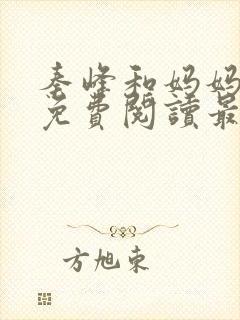 秦峰和妈妈
免费阅读最
方旭东